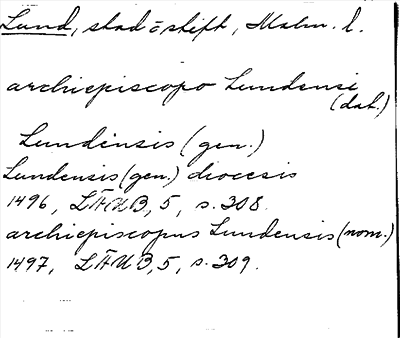 Lund, stad o stift, Malm. l.
archiepiscopo Lundensi
(dat.)
Lundinsis (gen.)
Lundensis (gen.) diocesis
1496, LÄUB, 5, s. 308.
archiepiscopus Lundensis (nom.)
1497, LÄUB, 5, s. 309.